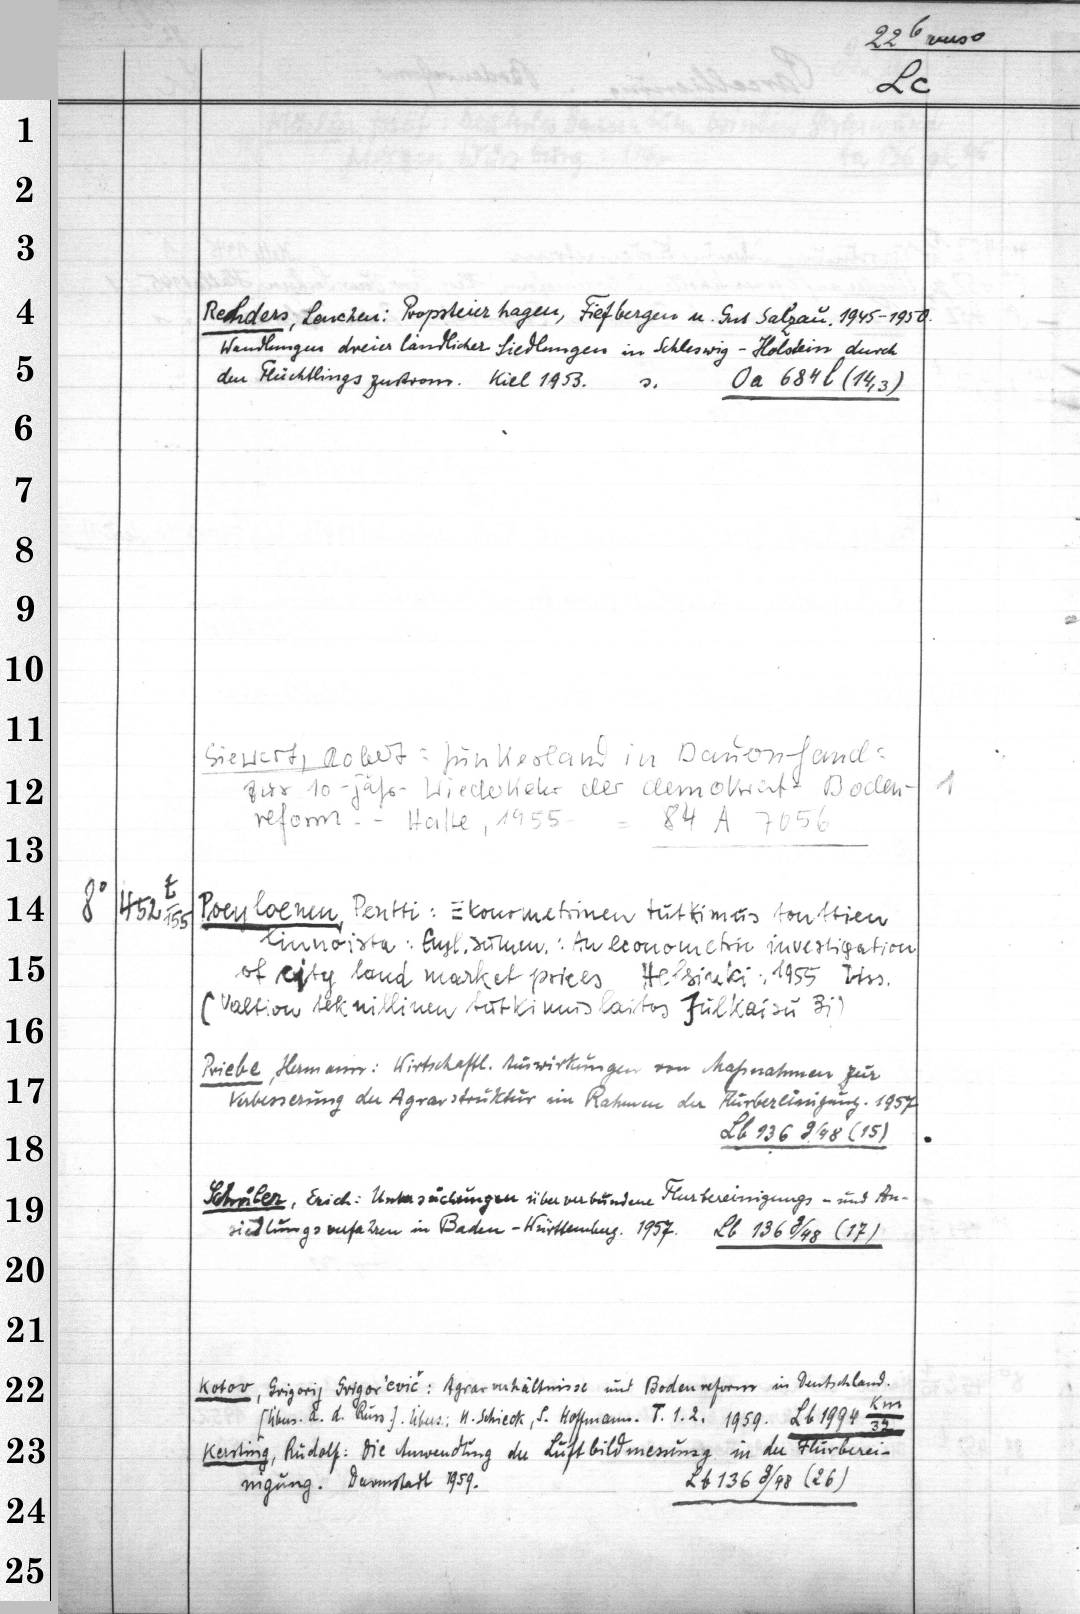 22 b verso
Lc
1
2
3
4
5
6
7
8
9
10
11
12
13
14
15
16
17
18
19
20
21
22
23
24
25
Rehders, Lenchen: Propsteierhagen, Fiefbergen u. Gut Salzau. 1945-1950.
Wandlungen dreier ländlicher Siedlungen in Schleswig-Holstein durch
den Flüchtlingszustrom. Kiel 1953. s. Oa 684 l (14,3)
Siewert, Robert: Junkerland in Bauernhand:
zur 10-jähr. Wiederkehr der demokrat. Boden- 1
reform. - Halle, 1955 = 84 A 7056
8° 452 t/155 Poeyloenen, Pentti: Ekonometrinen tutkimus tonttien
hinnoista: Engl. summ.: An econometric investigation
of city land market prices Helsinki: 1955 Diss.
(Valtion teknillinen tutkimuslaitos Julkaisu 31)
Priebe, Hermann: Wirtschaftl. Auswirkungen von Maßnahmen zur
Verbesserung der Agrarstruktur im Rahmen der Flurbereinigung. 1957
Lb 136 g/48 (15)
Schuler, Erich: Untersuchungen über verbundene Flurbereinigungs- und An-
siedlungsverfahren in Baden-Württemberg. 1957. Lb 136 g/48 (17)
Kotov, Grigorij Grigor'evič: Agrarverhältnisse und Bodenreform in Deutschland.
[Übers. a. d. Russ.]. Übers.: H. Schieck, S. Hoffmann. T. 1.2. 1959. Lb 1994 Km/32
Kersting, Rudolf: Die Anwendung der Luftbildmessung in der Flurberei-
nigung. Darmstadt 1959. Lb 136 g/48 (26)